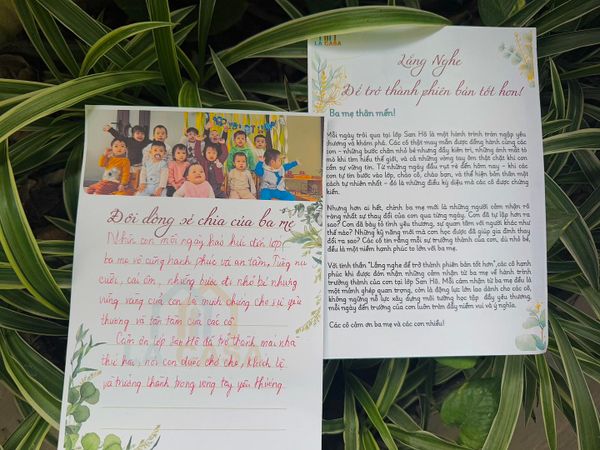 LA CASA
Lắng Nghe
Để trở thành phiên bản tốt hơn!
Ba mẹ thân mến!
Mỗi ngày trôi qua tại lớp San Hô là một hành trình tràn ngập yêu
thương và khám phá. Các cô thật may mắn được đồng hành cùng các
con – những bước chân nhỏ bé nhưng đầy kiên trì, những ánh mắt tò
mò khi tìm hiểu thế giới, và cả những vòng tay ôm thật chặt khi con
cần sự vững tin. Từ những ngày đầu rụt rè đến hôm nay – khi các
con tự tin bước vào lớp, chào cô, chào bạn, và thể hiện bản thân một
cách tự nhiên nhất – đó là những điều kỳ diệu mà các cô được chứng
kiến.
Nhưng hơn ai hết, chính ba mẹ mới là những người cảm nhận rõ
ràng nhất sự thay đổi của con qua từng ngày. Con đã tự lập hơn ra
sao? Con đã bày tỏ tình yêu thương, sự quan tâm với người khác như
thế nào? Những kỹ năng mới mà con học được đã giúp gia đình thay
đổi ra sao? Các cô tin rằng mỗi sự trưởng thành của con, dù nhỏ bé,
đều là một niềm hạnh phúc to lớn với ba mẹ.
Với tinh thần "Lắng nghe để trở thành phiên bản tốt hơn", các cô hạnh
phúc khi được đón nhận những cảm nhận từ ba mẹ về hành trình
trưởng thành của con tại lớp San Hô. Mỗi cảm nhận từ ba mẹ đều là
một mảnh ghép quan trọng, còn là động lực lớn lao dành cho các cô,
không ngừng nỗ lực xây dựng môi trường học tập đầy yêu thương,
mỗi ngày đến trường của con luôn tràn đầy niềm vui và ý nghĩa.
Các cô cảm ơn ba mẹ và các con nhiều!
Đôi dòng sẻ chia của ba mẹ
Nhìn con mỗi ngày háo hức đến lớp
ba mẹ vô cùng hạnh phúc và an tâm. Từng nụ
cười, cái ôm, những bước đi nhỏ bé nhưng
vững vàng của con là minh chứng cho sự yêu
thương và tận tâm của các cô.
Cảm ơn lớp San Hô đã trở thành mái nhà
thứ hai, nơi con được chở che, khích lệ
và trưởng thành trong vòng tay yêu thương.